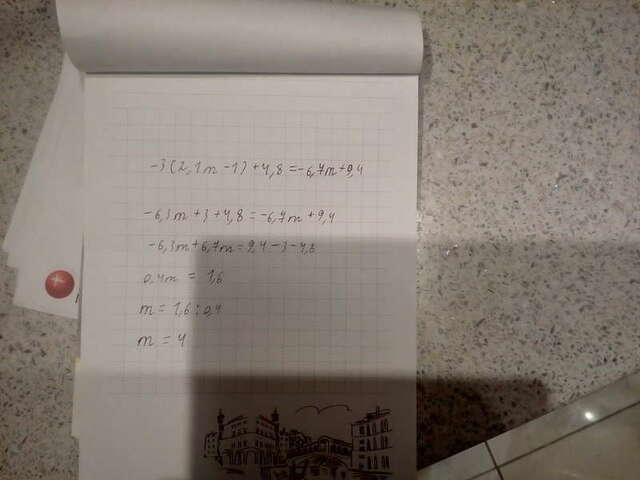 -3(2,1m -1)+4,8=-6,7m+9,4
-6,3m+3+4,8=-6,7m+9,4
-6,3m+6,7m=9,4-3-4,8
0,4m = 1,6
m = 1,6:0,4
m = 4